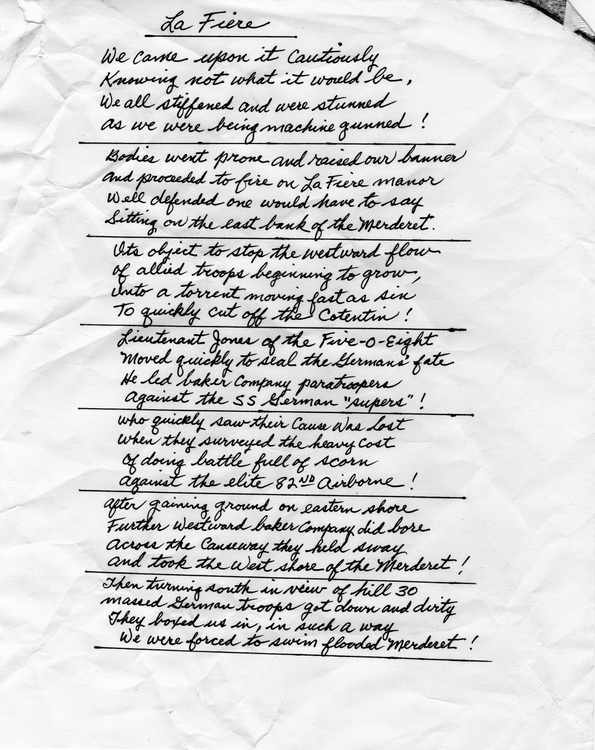 La Fiere
We came upon it Cautiously
Knowing not what it would be,
We all stiffened and were stunned
as we were being machine gunned !
Bodies went prone and raised our banner
and proceeded to fire on La Fiere manor
Well defended one would have to say
Sitting on the east bank of the Merderet.
Its object to stop the westward flow
of allied troops beginning to grow,
Into a torrent moving fast as sin
To quickly cut off the Cotentin !
Lieutenant Jones of the Five-O-Eight
Moved quickly to seal the Germans' fate
He led baker Company paratroopers
Against the SS German "supers" !
who quickly saw their Cause Was Lost
when they surveyed the heavy Cost
Of doing battle full of scorn
against the elite 82ND Airborne !
After gaining ground on eastern shore
Further Westward baker Company did bore
Across the Causeway they held sway
and took the West shore of the Merderet !
Then turning south in view of hill 30
massed German troops got down and dirty
They boxed us in, in such a way
We were forced to swim flooded Merderet !